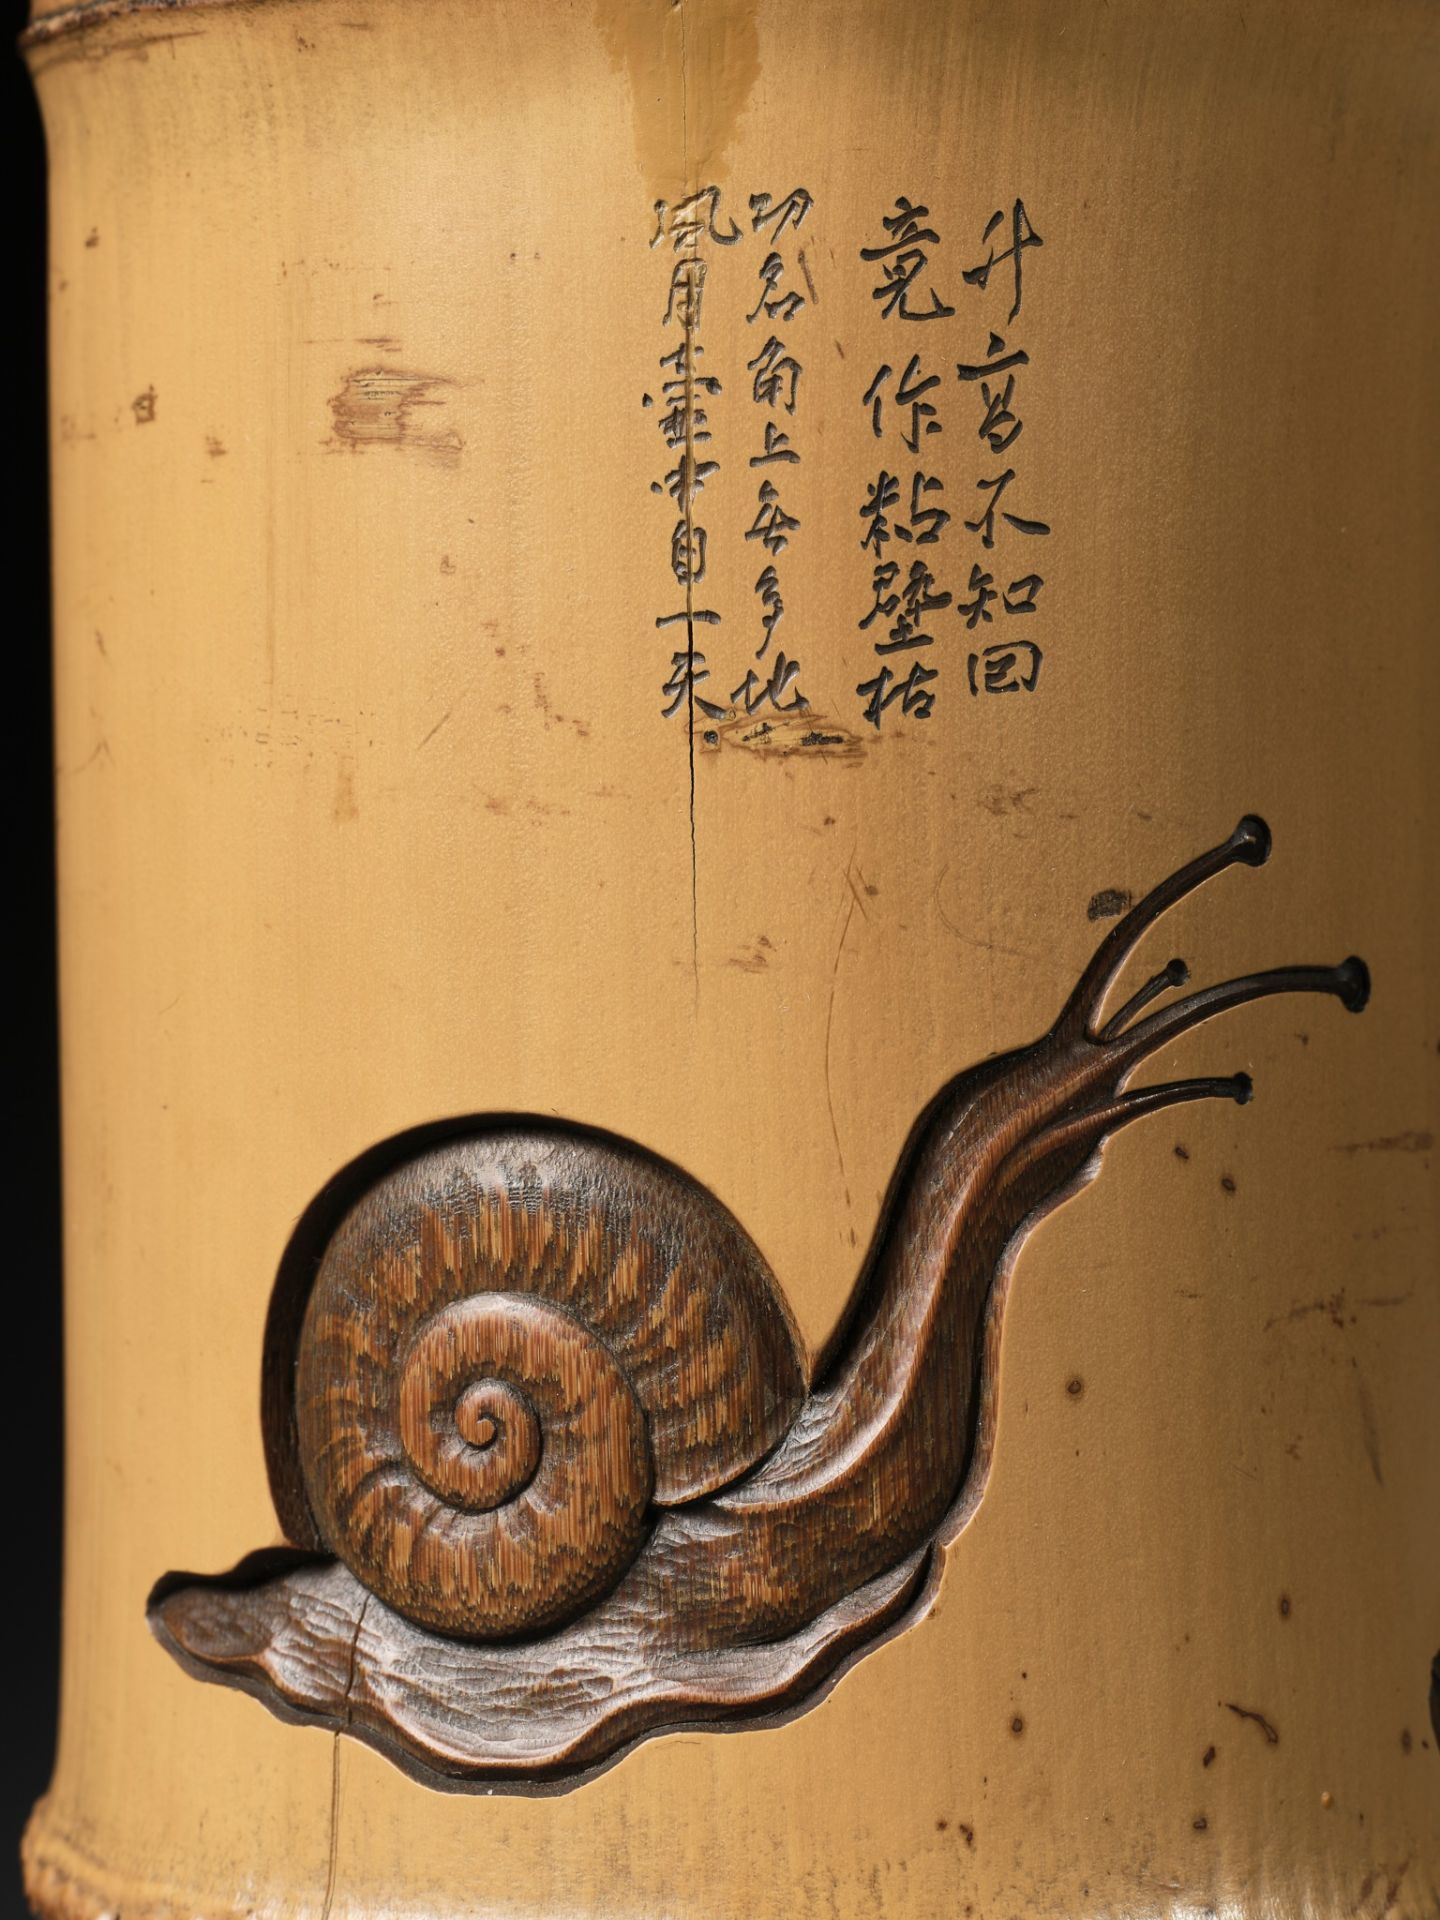 升高不知回
竟作粘壁枯
功名角上無多地
風月壺中自一天